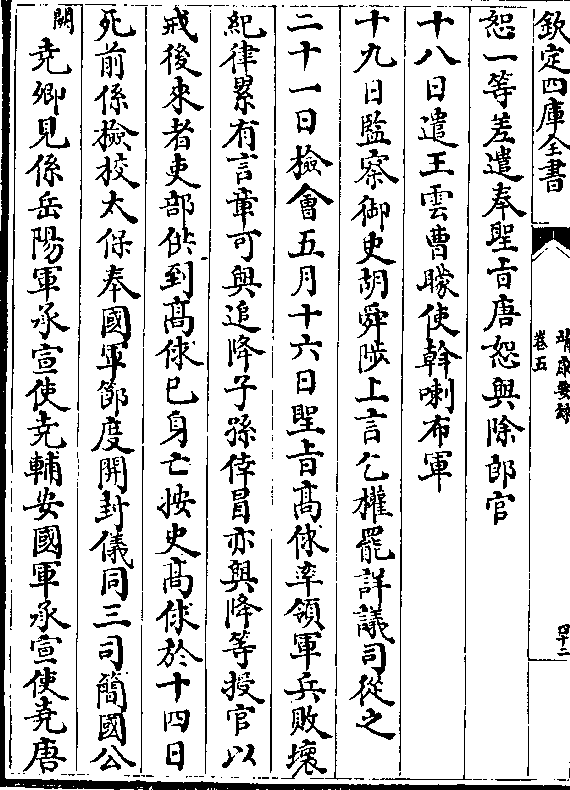 欽定四庫全書
靖康要錄
卷五
四十二
恕一等差遣奉聖旨唐恕與除郎官
十八日遣王雲曹矇使斡喇布軍
十九日監察御史胡舜陟上言乞權罷詳議司從之
二十一日檢會五月十六日聖旨高俅率領軍兵敗壞
紀律累有言章可與追降子孫倖冒亦與降等授官以
戒後來者吏部供到高俅已身亡按史高俅於十四日
死前係檢校太保奉國軍節度開封儀同三司簡國公
闕堯卿見係岳陽軍承宣使堯輔安國軍承宣使堯唐